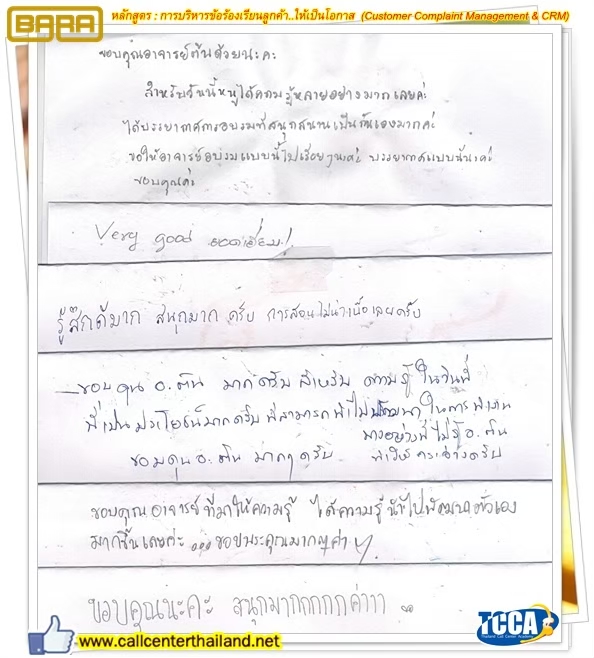 BARA
หลักสูตร : การบริหารข้อร้องเรียนลูกค้า..ให้เป็นโอกาส (Customer Complaint Management & CRM)
ขอบคุณอาจารย์ต้นด้วยนะคะ
สำหรับวันนี้หนูได้ความรู้หลายอย่างมากเลยค่ะ
ได้บรรยากาศการอบรมที่สนุกสนานเป็นกันเองมากค่ะ
ขอให้อาจารย์อบรมแบบนี้ไปเรื่อยๆนะคะ บรรยากาศแบบนี้นะคะ
ขอบคุณค่ะ
Very good ยอดเยี่ยม!
รู้สึกดีมาก สนุกมาก ครับ การสอนไม่น่าเบื่อเลยครับ
ขอบคุณ อ.ต้น มากครับ สำหรับ ความรู้ ในวันนี้
ที่เป็นประโยชน์มากครับ ที่สามารถนำไปพัฒนาในการทำงาน
บางอย่างที่ไม่รู้ อ.ต้น
ขอบคุณ อ.ต้น มากๆ ครับ ทำให้กระจ่างครับ
ขอบคุณอาจารย์ ที่มาให้ความรู้ ได้ความรู้นำไปพัฒนาตัวเอง
มากขึ้นเลยค่ะ ... ขอบพระคุณมากๆค่ะ
ขอบคุณนะคะ สนุกมากกกกกค่าาา
www.callcenterthailand.net
TCCA
Thailand Call Center Academy